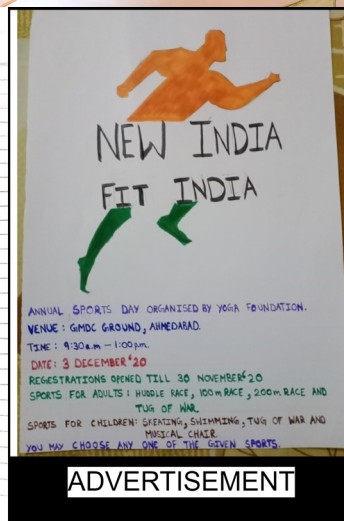 NEW INDIA
FIT INDIA
ANNUAL SPORTS DAY ORGANISED BY YOGA FOUNDATION.
VENUE : GMDC GROUND, AHMEDABAD.
TIME : 9:30a.m - 1:00pm.
DATE : 3 DECEMBER'20
REGESTRATIONS OPENED TILL 30 NOVEMBER'20
SPORTS FOR ADULTS : HUDDLE RACE, 100m RACE, 200m RACE AND
TUG OF WAR.
SPORTS FOR CHILDREN: SKEATING, SWIMMING, TUG OF WAR AND
MUSICAL CHAIR.
YOU MAY CHOOSE ANY ONE OF THE GIVEN SPORTS.
ADVERTISEMENT